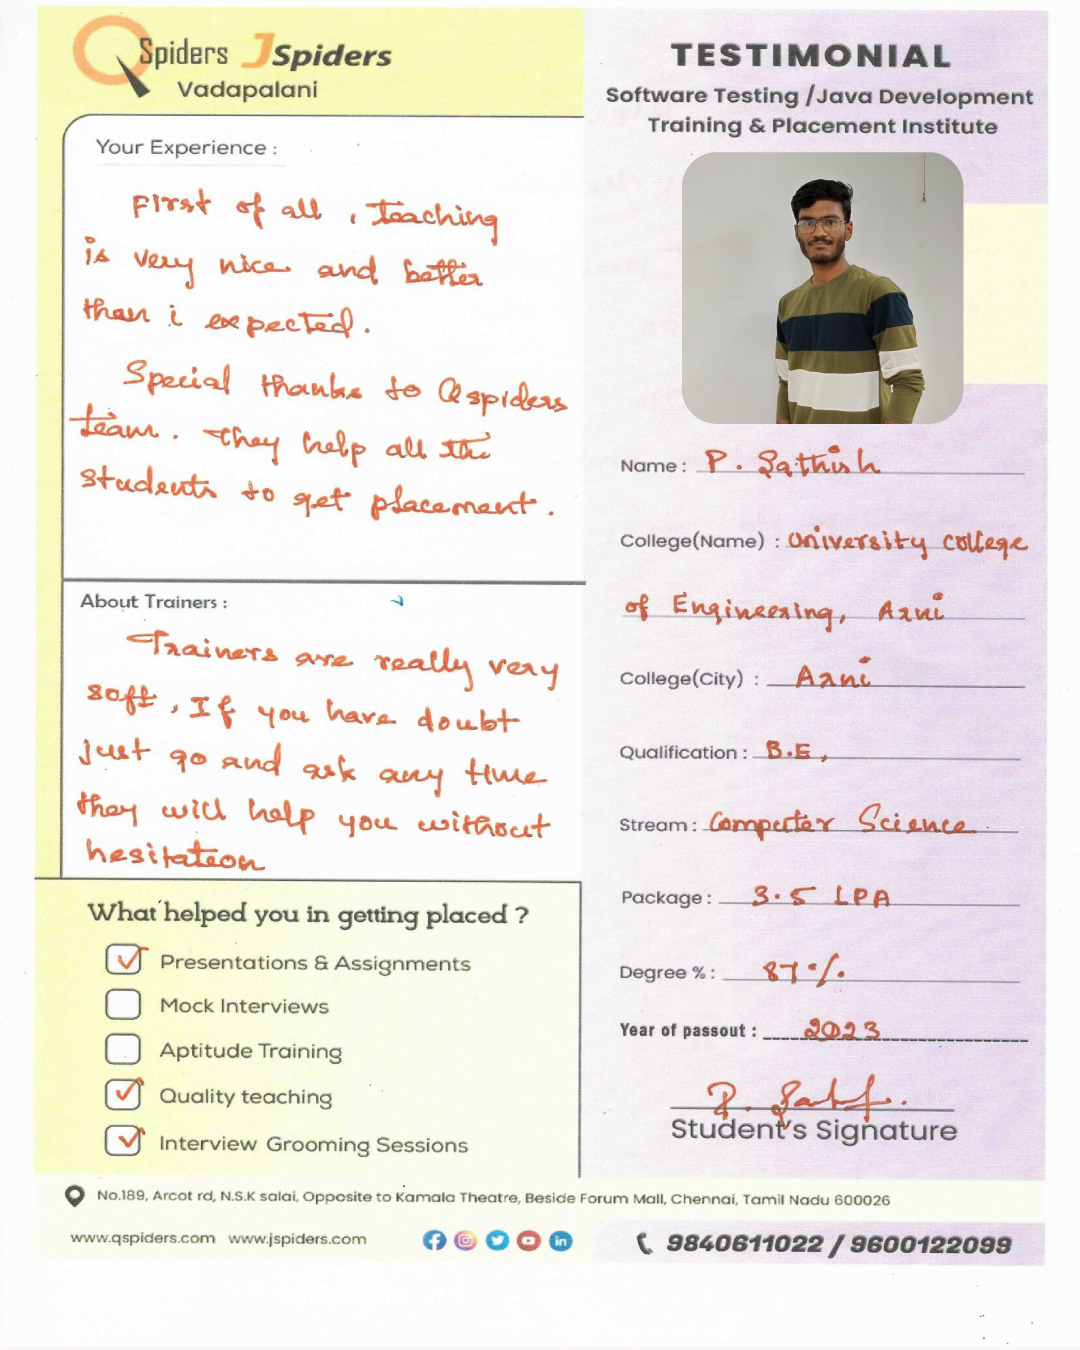 QSpiders JSpiders
Vadapalani
Your Experience :
First of all , teaching
is very nice and better
than i expected.
Special thanks to Qspiders
team. They help all the
students to get placement.
About Trainers :
Trainers are really very
soft, If you have doubt
just go and ask any time
they will help you without
hesitation
What helped you in getting placed ?
Presentations & Assignments
Mock Interviews
Aptitude Training
Quality teaching
Interview Grooming Sessions
TESTIMONIAL
Software Testing /Java Development
Training & Placement Institute
Name : P. Sathish
College(Name) : University College
of Engineering, Arni
College(City) : Arni
Qualification : B.E,
Stream : Computer Science
Package : 3.5 LPA
Degree % : 87%
Year of passout : 2023
P. Sati.
Student's Signature
No.189, Arcot rd, N.S.K salai, Opposite to Kamala Theatre, Beside Forum Mall, Chennai, Tamil Nadu 600026
www.qspiders.com www.jspiders.com
9840611022 / 9600122099